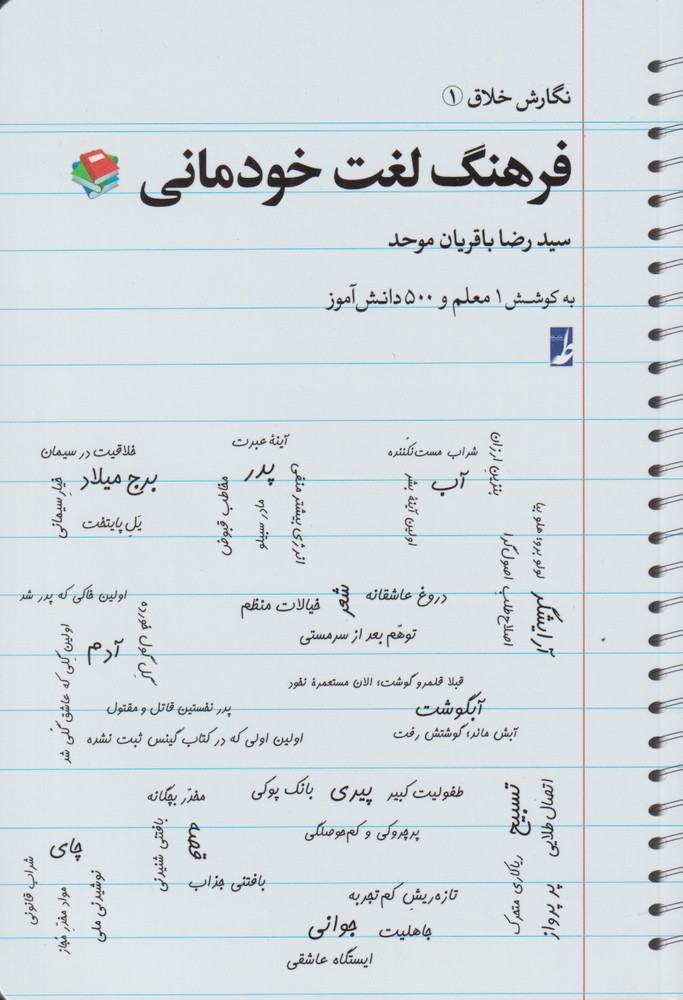 نگارش خلاق ①
فرهنگ لغت خودمانی
سید رضا باقریان موحد
به کوشش ۱ معلم و ۵۰۰ دانش‌آموز
بنزین ارزان
شراب مست‌نکننده
آب
اولین آینهٔ بشر
آینهٔ عبرت
پدر
انرژی بیشتر منفی
مادر سبیلو
مخاطب قبوض
خلاقیت در سیمان
برج میلاد
خیار سیمانی
یَلِ پایتخت
لولو برو؛ هلو بیا
آرایشگر
اصلاح‌طلب اصول‌گرا
دروغ عاشقانه
شعر
خیالات منظم
توهّم بعد از سرمستی
اولین خاکی که پدر شد
آدم
گِلِ گول خورده
اولین گِلی که عاشق گُلی شد
پدر نخستین قاتل و مقتول
اولین اولی که در کتاب گینس ثبت نشده
قبلا قلمرو گوشت؛ الان مستعمرهٔ نخود
آبگوشت
آبش ماند؛ گوشتش رفت
اتصال طلایی
تسبیح
ریاکاری متحرک
پر پرواز
طفولیت کبیر
پیری
بانک پوکی
پرچروکی و کم‌حوصلگی
مخدّر بچگانه
قصه
بافتنی شنیدنی
بافتنی جذاب
چای
شراب قانونی
مواد مخدّر مُجاز
نوشیدنی ملی
تازه‌ریشِ کم‌تجربه
جاهلیت
جوانی
ایستگاه عاشقی